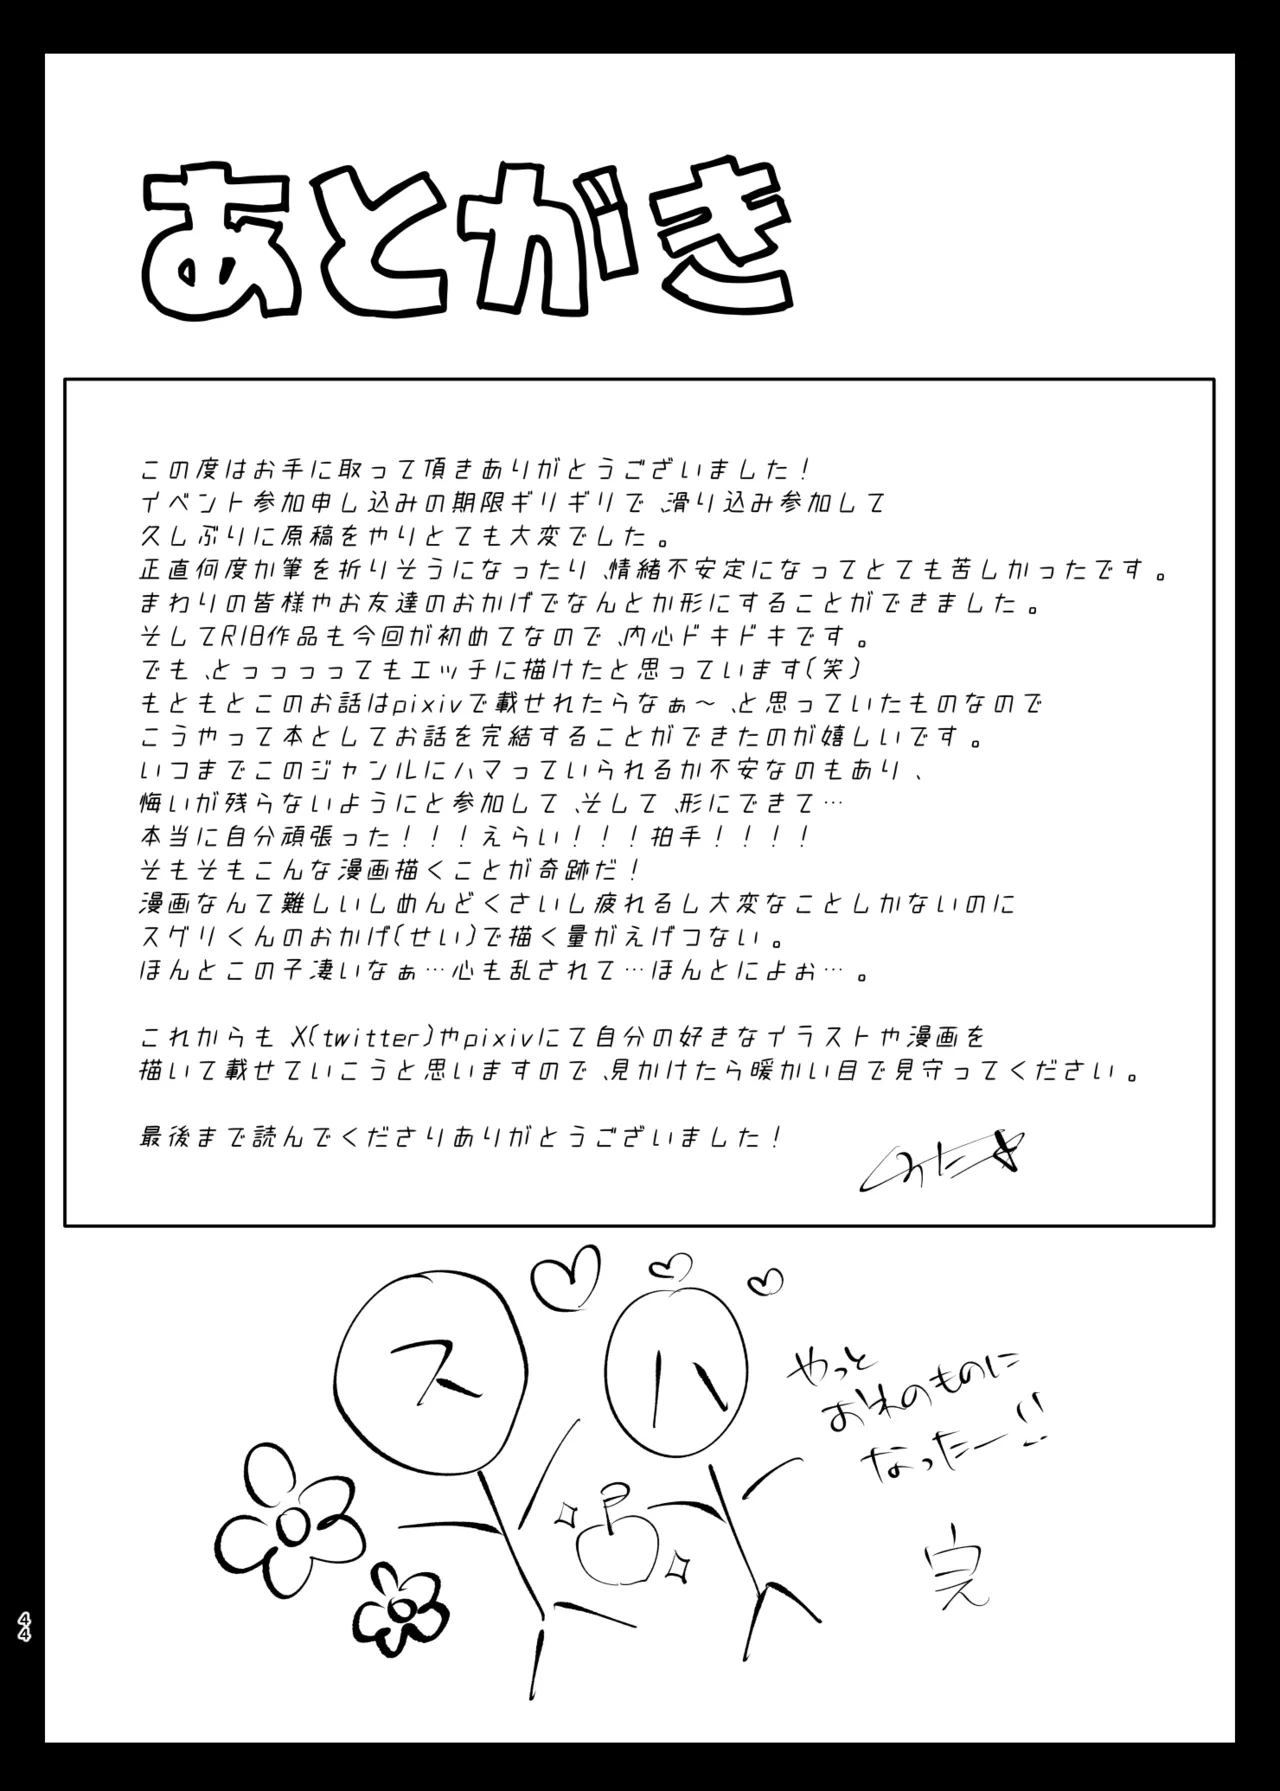 あとがき
この度はお手に取って頂きありがとうございました！
イベント参加申し込みの期限ギリギリで、滑り込み参加して
久しぶりに原稿をやりとても大変でした。
正直何度か筆を折りそうになったり、情緒不安定になってとても苦しかったです。
まわりの皆様やお友達のおかげでなんとか形にすることができました。
そしてR18作品も今回が初めてなので、内心ドキドキです。
でも、とっっっってもエッチに描けたと思っています(笑)
もともとこのお話はpixivで載せれたらなぁ～、と思っていたものなので
こうやって本としてお話を完結することができたのが嬉しいです。
いつまでこのジャンルにハマっていられるか不安なのもあり、
悔いが残らないようにと参加して、そして、形にできて…
本当に自分頑張った！！！えらい！！！拍手！！！！
そもそもこんな漫画描くことが奇跡だ！
漫画なんて難しいしめんどくさいし疲れるし大変なことしかないのに
スグリくんのおかげ(せい)で描く量がえげつない。
ほんとこの子凄いなぁ…心も乱されて…ほんとによぉ…。
これからも X(twitter)やpixivにて自分の好きなイラストや漫画を
描いて載せていこうと思いますので、見かけたら暖かい目で見守ってください。
最後まで読んでくださりありがとうございました！
ス
ハ
やっと
おれのものに
なったー!!
完
44